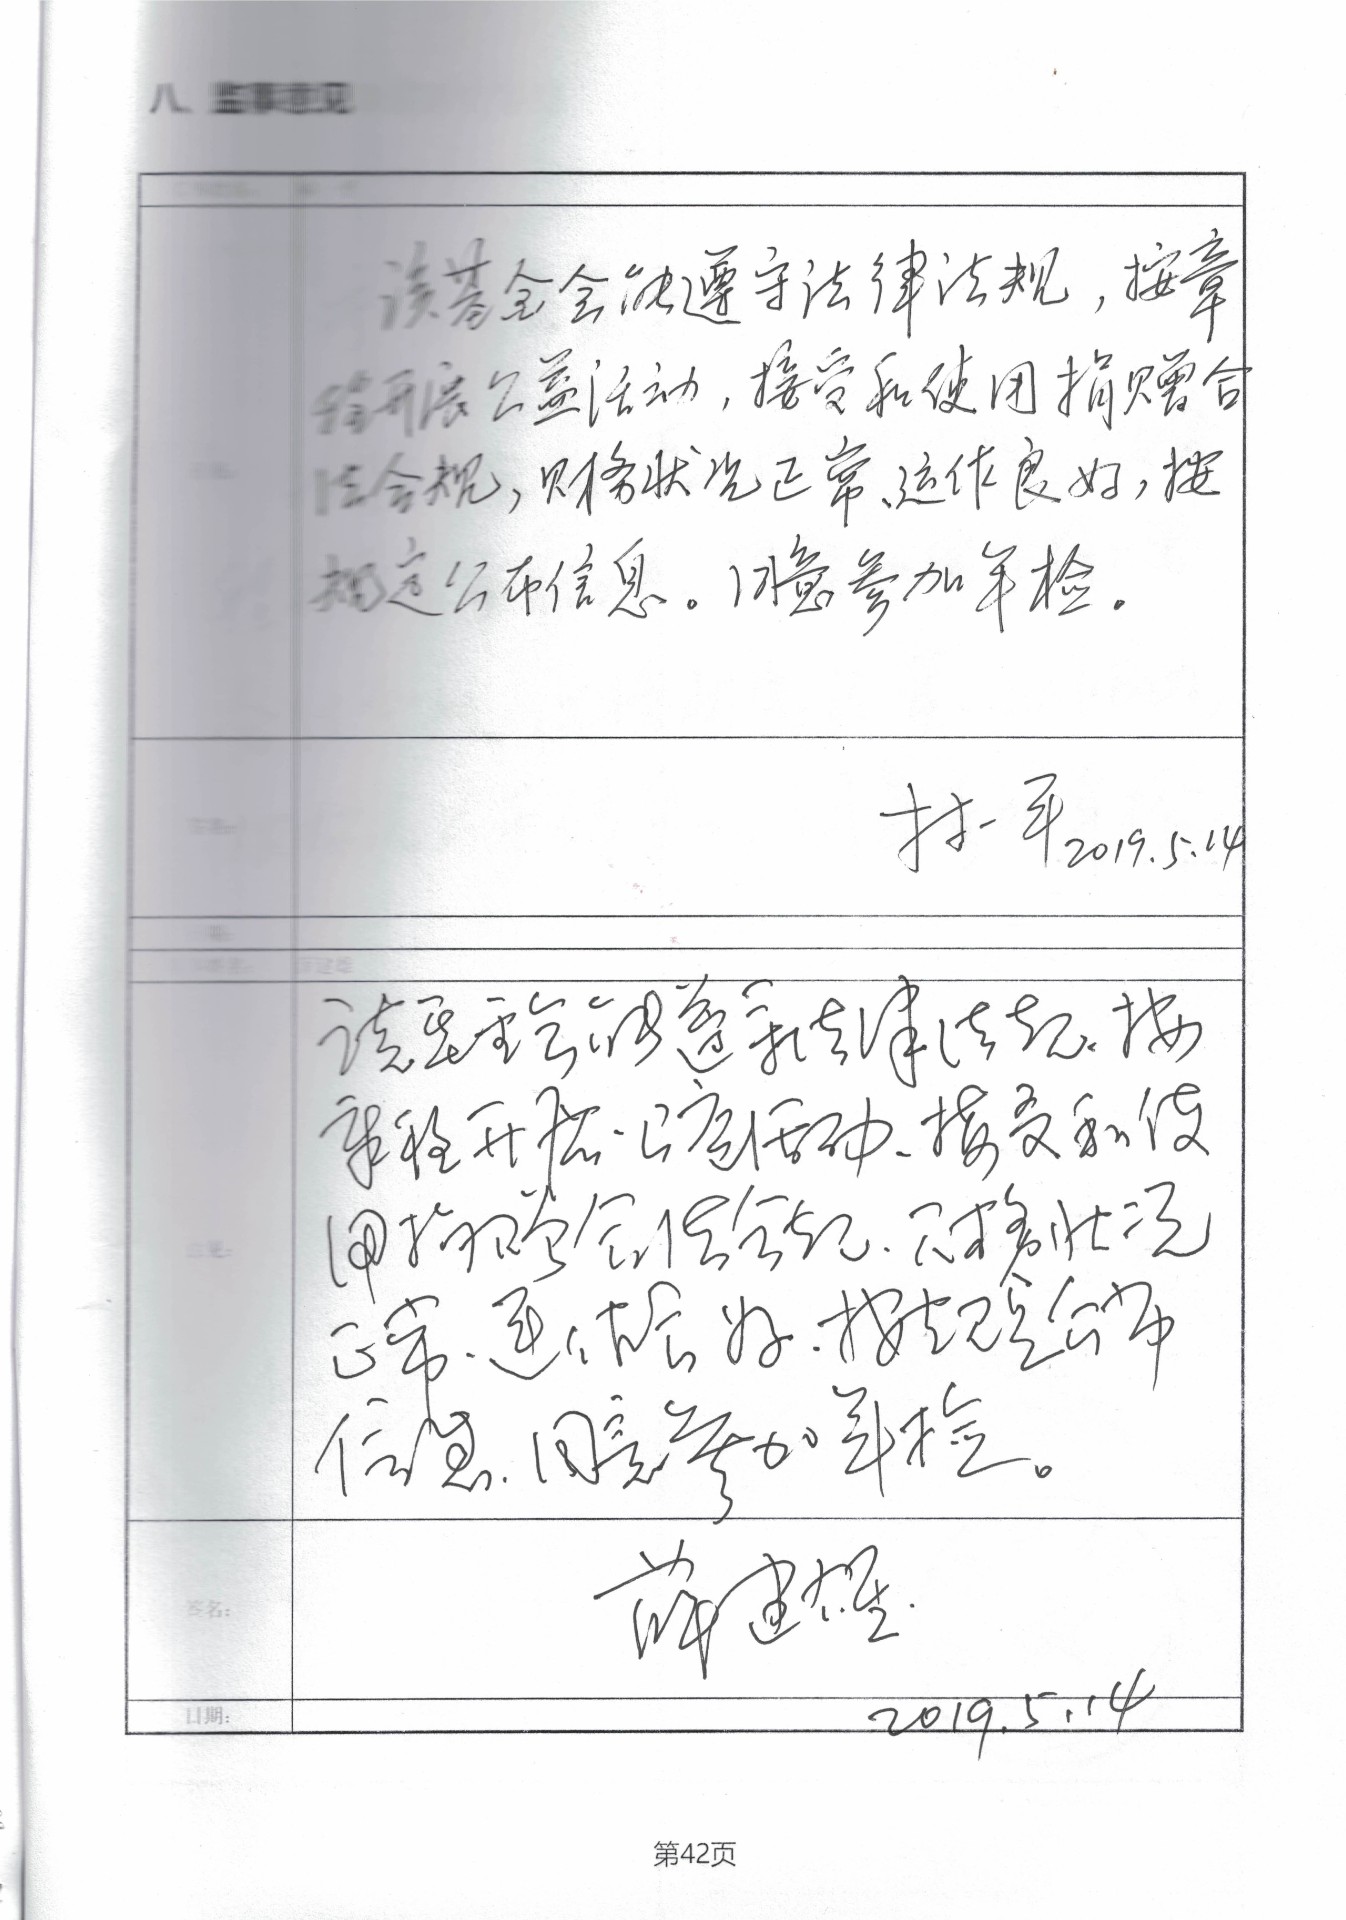 八、监事意见
该基金会能遵守法律法规，按章
程开展公益活动，接受和使用捐赠合
法合规，财务状况正常、运作良好，按
规定公布信息。同意参加年检。
林一平 2019.5.14
薛建雄
该基金会能遵守法律法规、按
章程开展公益活动、接受和使
用捐赠合法合规、财务状况
正常、运作良好、按规定公布
信息、同意参加年检。
意见：
签名：
薛建雄
日期：
2019.5.14
第42页